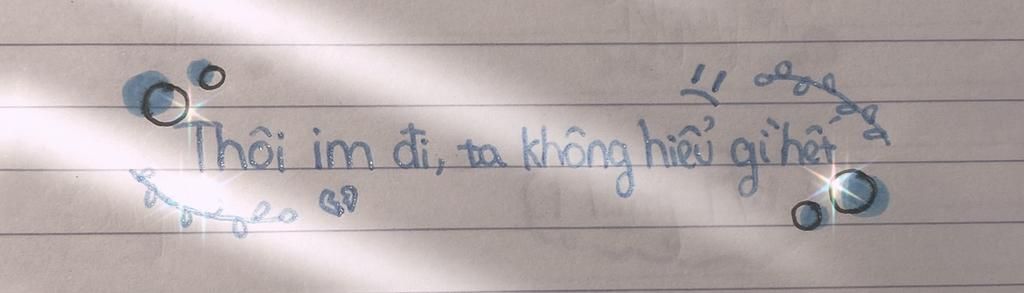 Thôi im đi, ta không hiểu gì hết